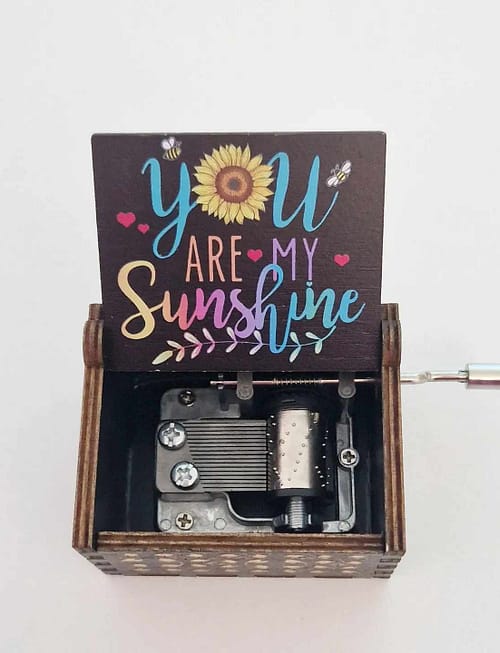 YOU
ARE MY
Sunshine